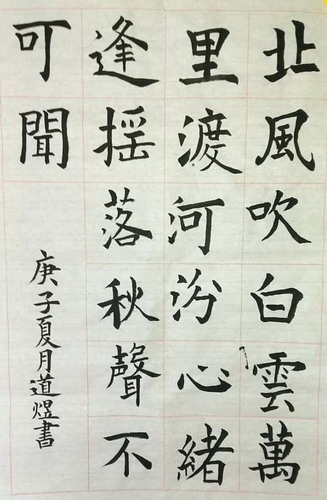 北風吹白雲萬
里渡河汾心緒
逢揺落秋聲不
可聞
庚子夏月道煜書